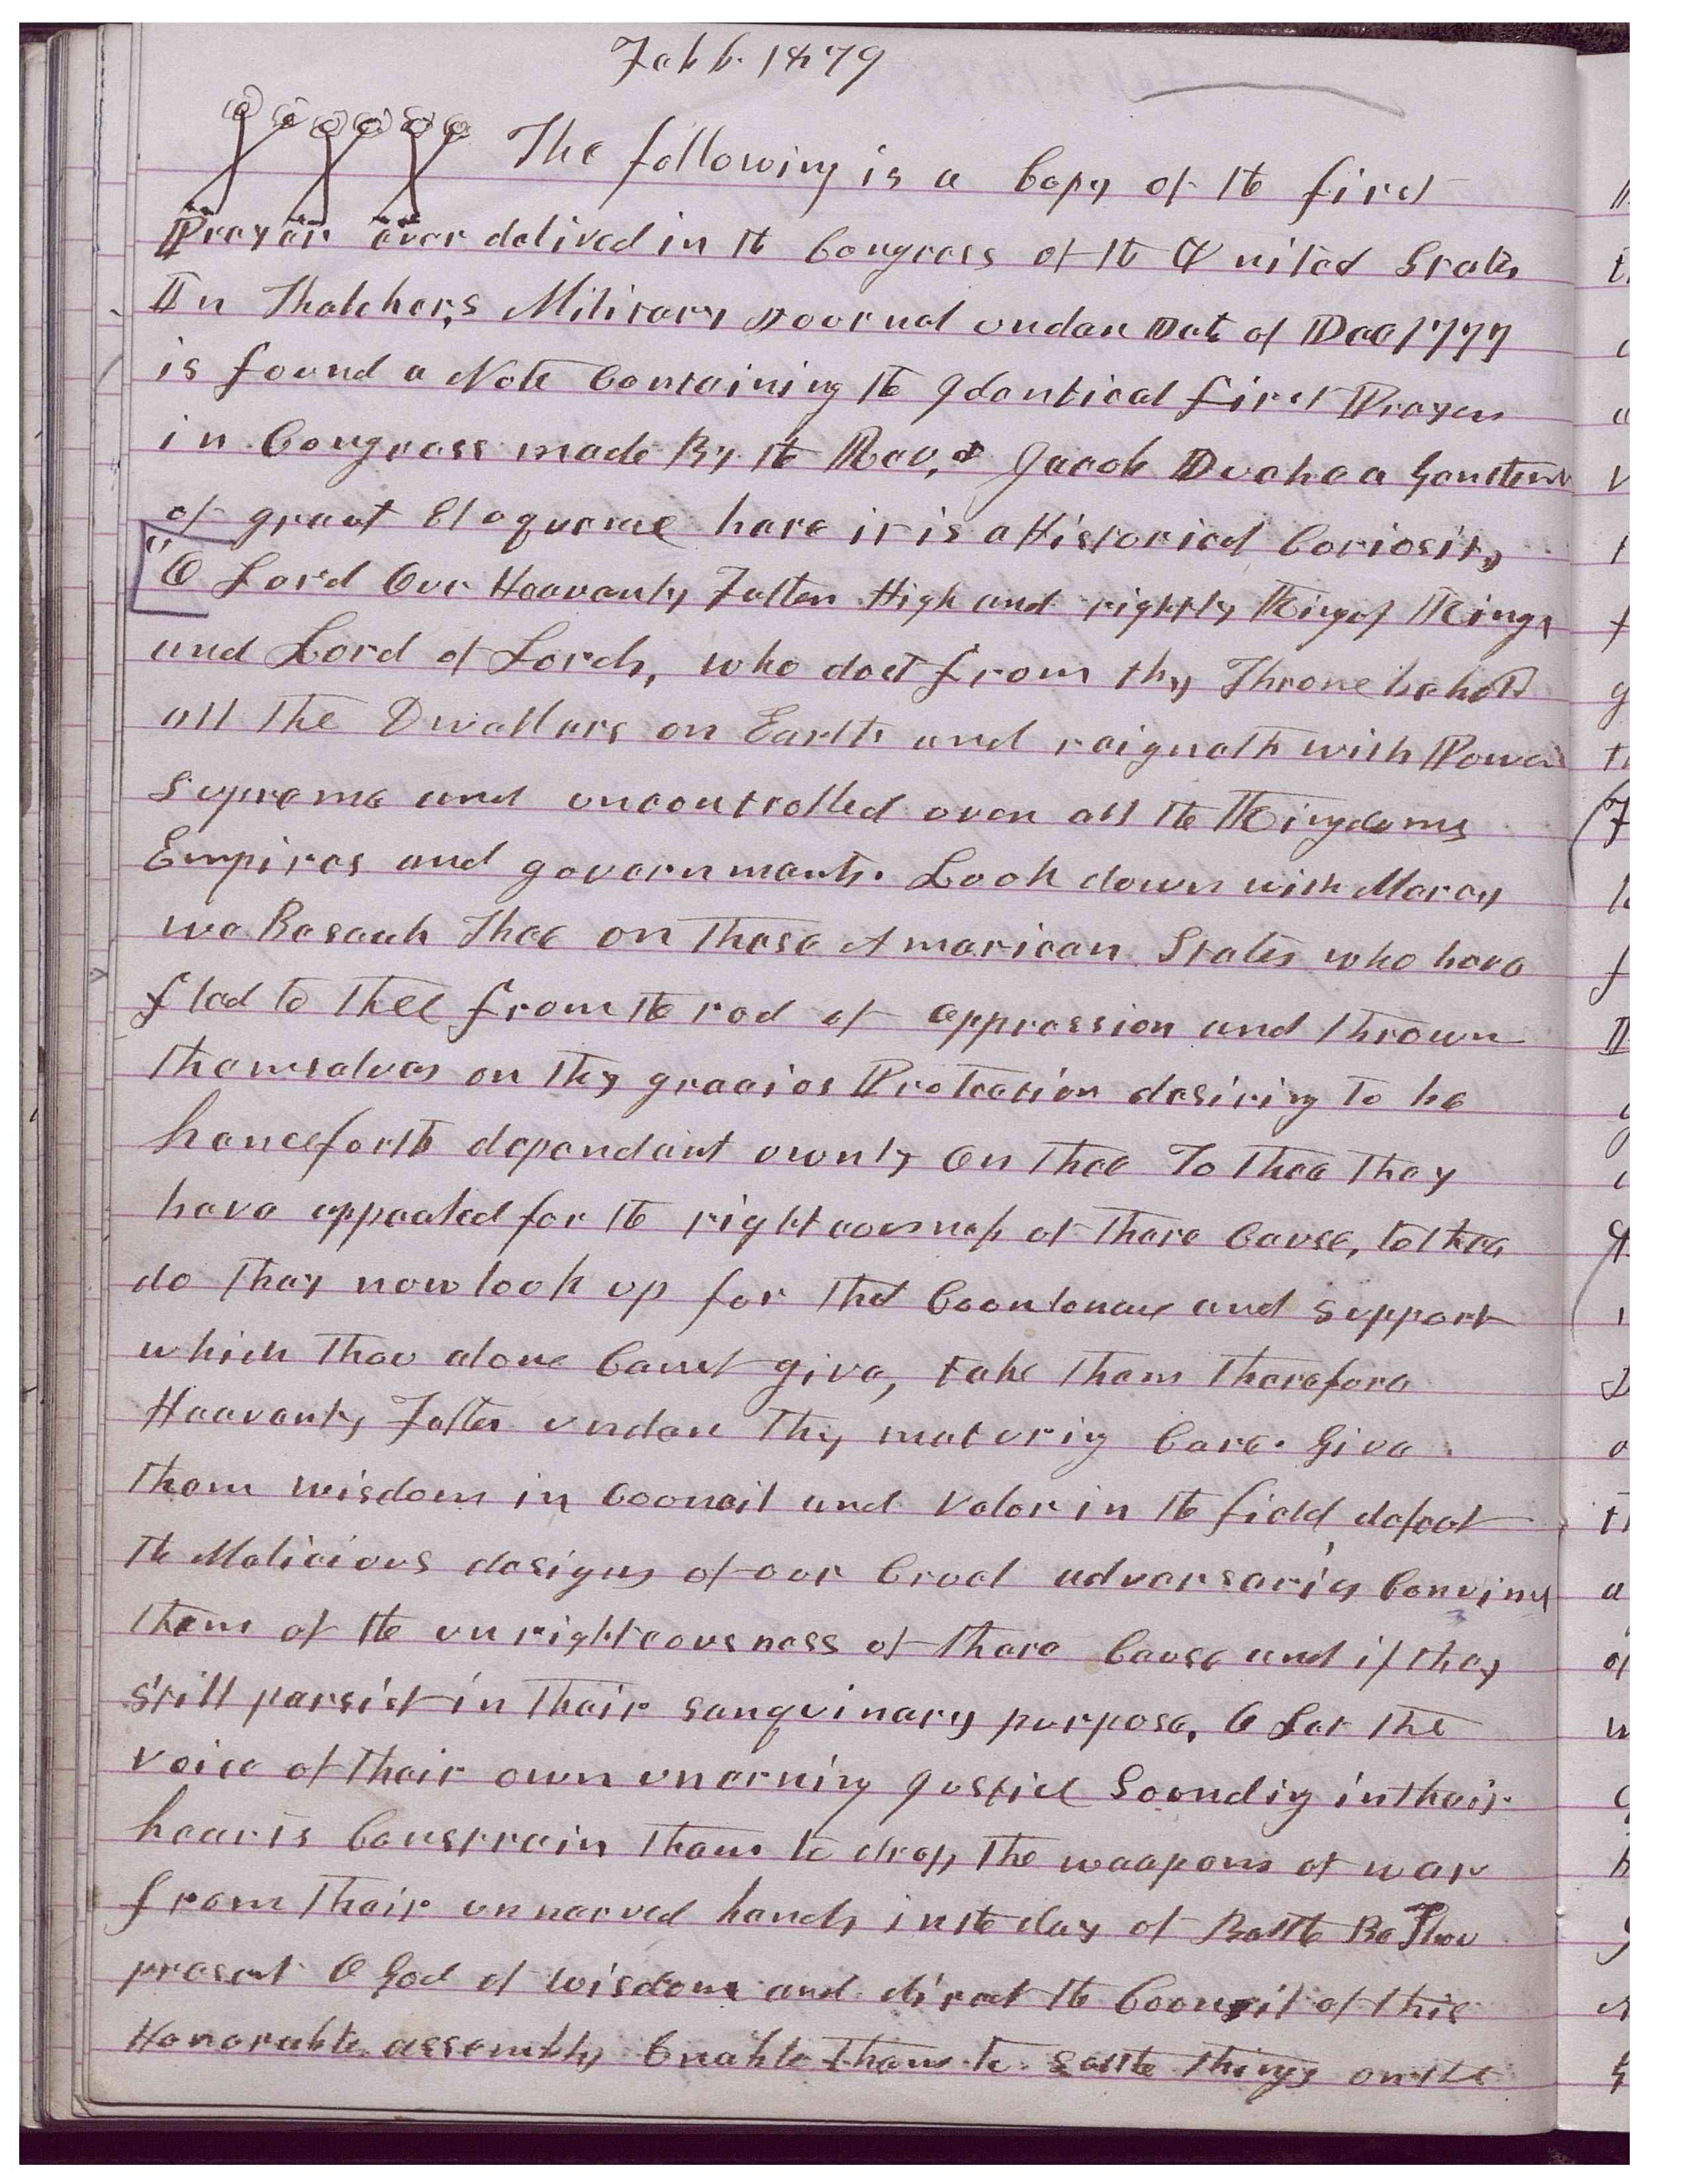 Feb 6. 1879
The following is a Copy of the first
Prayer ever delived in the Congress of the United States
In Thatcher,s Military Journal under Date of Dec 1777
is found a Note Containing the Identical first Prayer
in Congress made By the Rev,d Jacob Duche a Gentlem
of great Eloquence here it is a Historical Coriosity
"O Lord Our Heavenly Father High and rightly King of Kings
and Lord of Lords, who doet from thy Throne behold
all the Dwellers on Earth and reigneth with Power
Supreme and uncontrolled over all the Kingdoms
Empires and governments. Look down with Mercy
we Beseech Thee on These American States who have
fled to thee from the rod of oppression and thrown
themselves on thy gracios Protection desiring to be
henceforth dependant ownly on Thee To Thee They
have appealed for the righteousness of there Cause, to thee
do they now look up for that Coontenance and support
which Thou alone Canst give, take them therefore
Heavenly Father under Thy nuturing Care. Give
them wisdom in Cooncil and Valor in the field defeat
the Malicious designs of our Cruel adversaries Convince
them of the unrighteousness of there Cause and if they
still persist in their sanquinary purpose, O Let the
voice of their own unerning Justice Soonding in their
hearts Constrain them to drop the weapons of war
from their unnerved hands in the day of Battle Be Thou
present O God of wisdom and direct the Cooncil of this
Honorable assembly Enable them to settle things on the